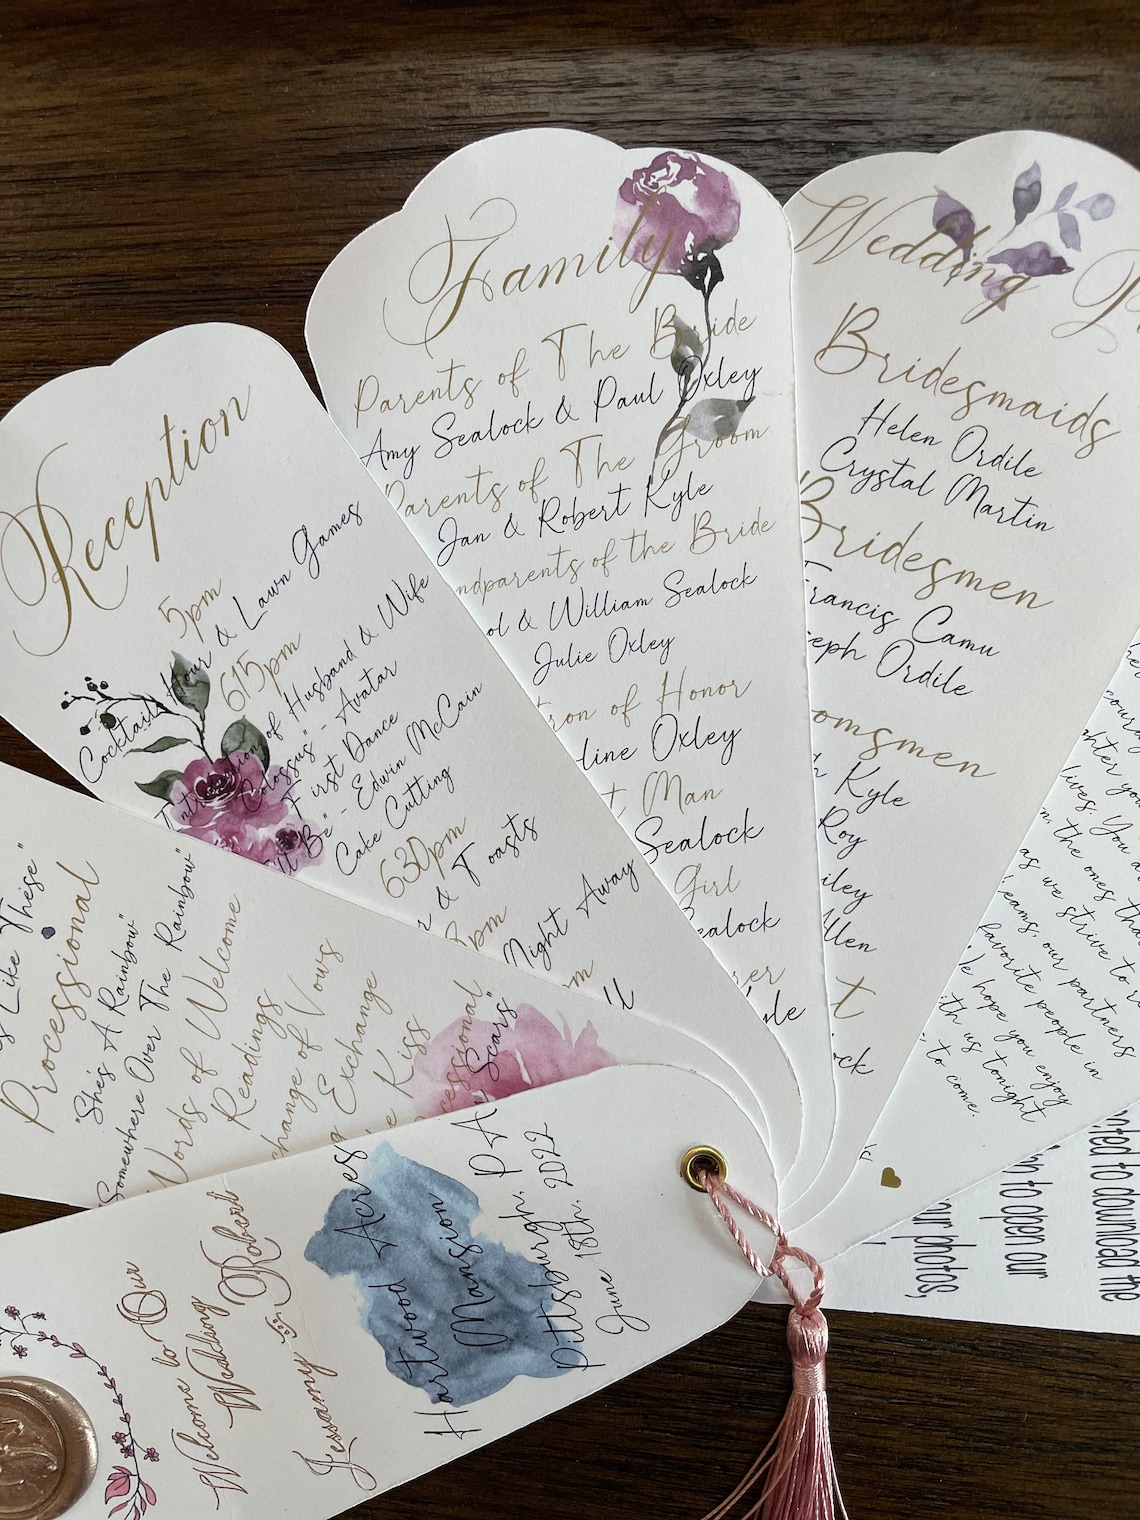 Welcome to Our
Wedding
Jessamy & Robert
Hartwood Acres
Mansion
Pittsburgh, PA
June 18th, 2022
Like These"
Processional
"She's A Rainbow"
Somewhere Over The Rainbow"
Words of Welcome
Readings
change of Vows
Exchange
Kiss
cessional
Scars"
Reception
5pm
Cocktail Hour & Lawn Games
615pm
of Husband & Wife
Colossus" - Avatar
First Dance
Be" - Edwin McCain
Cake Cutting
630pm
& Toasts
pm
Night Away
pm
Family
Parents of The Bride
Amy Sealock & Paul Oxley
Parents of The Groom
Jan & Robert Kyle
ndparents of the Bride
ol & William Sealock
Julie Oxley
ron of Honor
line Oxley
t Man
Sealock
Girl
ealock
rer
yle
Wedding P
Bridesmaids
Helen Ordile
Crystal Martin
Bridesmen
Francis Camu
seph Ordile
omsmen
Kyle
Roy
iley
llen
t
ock
lives. You a
the ones tha
as we strive to r
eams, our partners
favorite people in
We hope you enjoy
ith us tonight
to come.
ted to download the
n to open our
our photos